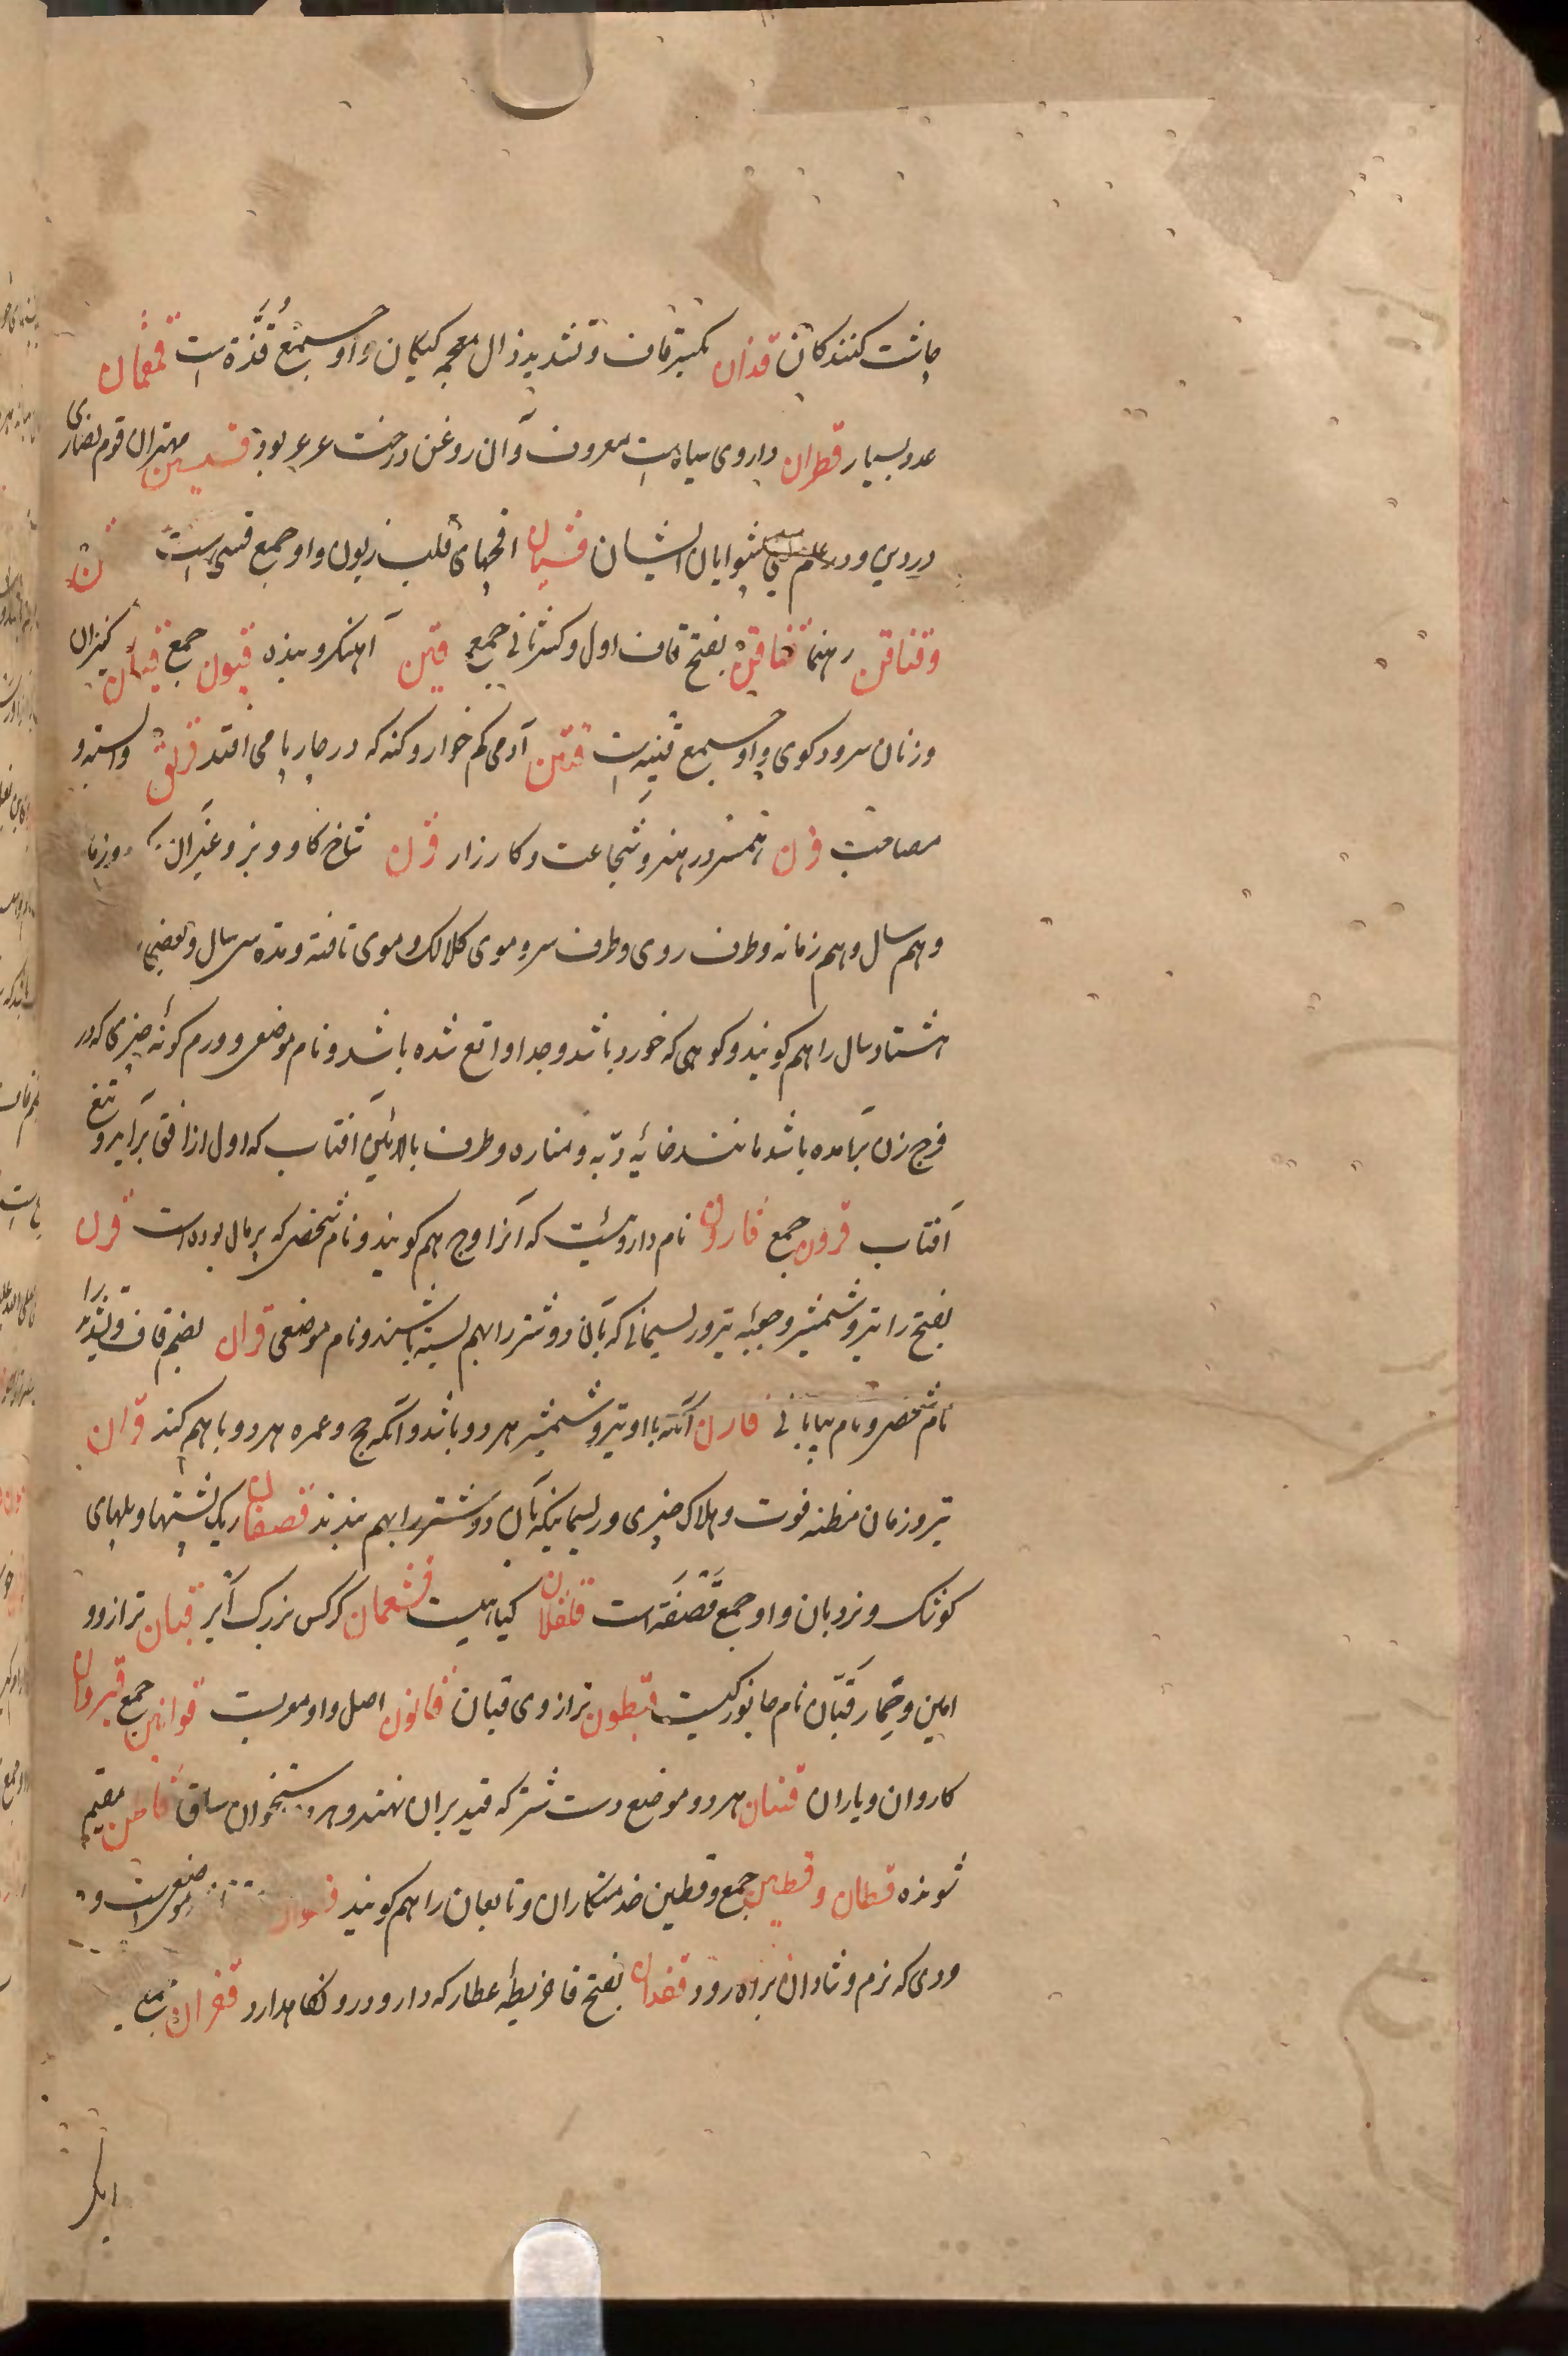 چاشت کنندگان قذان بکسر قاف و تشدید ذال معجمه کیکان و او جمع قُذَّة است قمقمان
عدد بسیار قطران داروی سیاه است معروف و آن روغن درخت عرعر بود قسیسین مهتران قوم نصاری
در دین و در علم پیشوایان ایشان قسیان افجهای قلب زبون و او جمع قسی است قن
وقناقن رهنما قناقن بفتح قاف اول و کسر ثانی جمع قین آهنگر و بنده قیون جمع قیان کنیزان
و زنان سرود کوی و او جمع قینه است قتین آدمی کم خوار و کنه که در چارپا می افتد قرین وابسته و
مصاحب قرن همسر در هنر و شجاعت و کارزار قرن شاخ کاو و بز و غیر آن
و هم سال و هم زمانه و طرف روی و طرف سر و موی کلالک و موی تافته و مده سی سال و بعضی
هشتاد سال را هم کویند و کوهی که خورد باشد و جدا واقع شده باشد و نام موضعی و ورم کونه چیزی که در
فرج زن برآمده باشد مانند خایه دبه و مناره و طرف بالائین آفتاب که اول از افق برآید و تیغ
آفتاب قرون جمع قارون نام داروئیست که آنرا وج هم کویند و نام شخصی که پرمال بوده است قرن
بفتح را تیر و شمشیر و جعبه تیر و ریسمانی که بآن دو شتر را بهم بسته باشند و نام موضعی قران بضم قاف و تشدید را
نام شخصی و نام بیابانی قارن آنکه با او تیر و شمشیر هر دو باشد و آنکه حج و عمره هر دو با هم کند قران
تیر و زمان مظنه فوت و هلاک چیزی و ریسمانیکه بآن دو شتر را بهم بندند قصفان ریک پشتها و پلهای
کوشک و نردبان و او جمع قَصَفَة است قلقلان کیاهیست قشعمان کرکس بزرک اثر قبان ترازو و
امین و حمار قبّان نام جانورکیست قبطون ترازوی قبان قانون اصل و او معربست قوانین جمع قیروان
کاروان و یاران قینان هر دو موضع دست شتر که قید بران نهند و هر دو استخوان ساق قاطن مقیم
شونده قطان و قطین جمع و قطین خدمتکاران و تابعان را هم کویند موضعی است و
ودی که نرم و شادان براه رود قفدان بفتح فا خریطه عطار که دارو در و نکاهدارد قفران